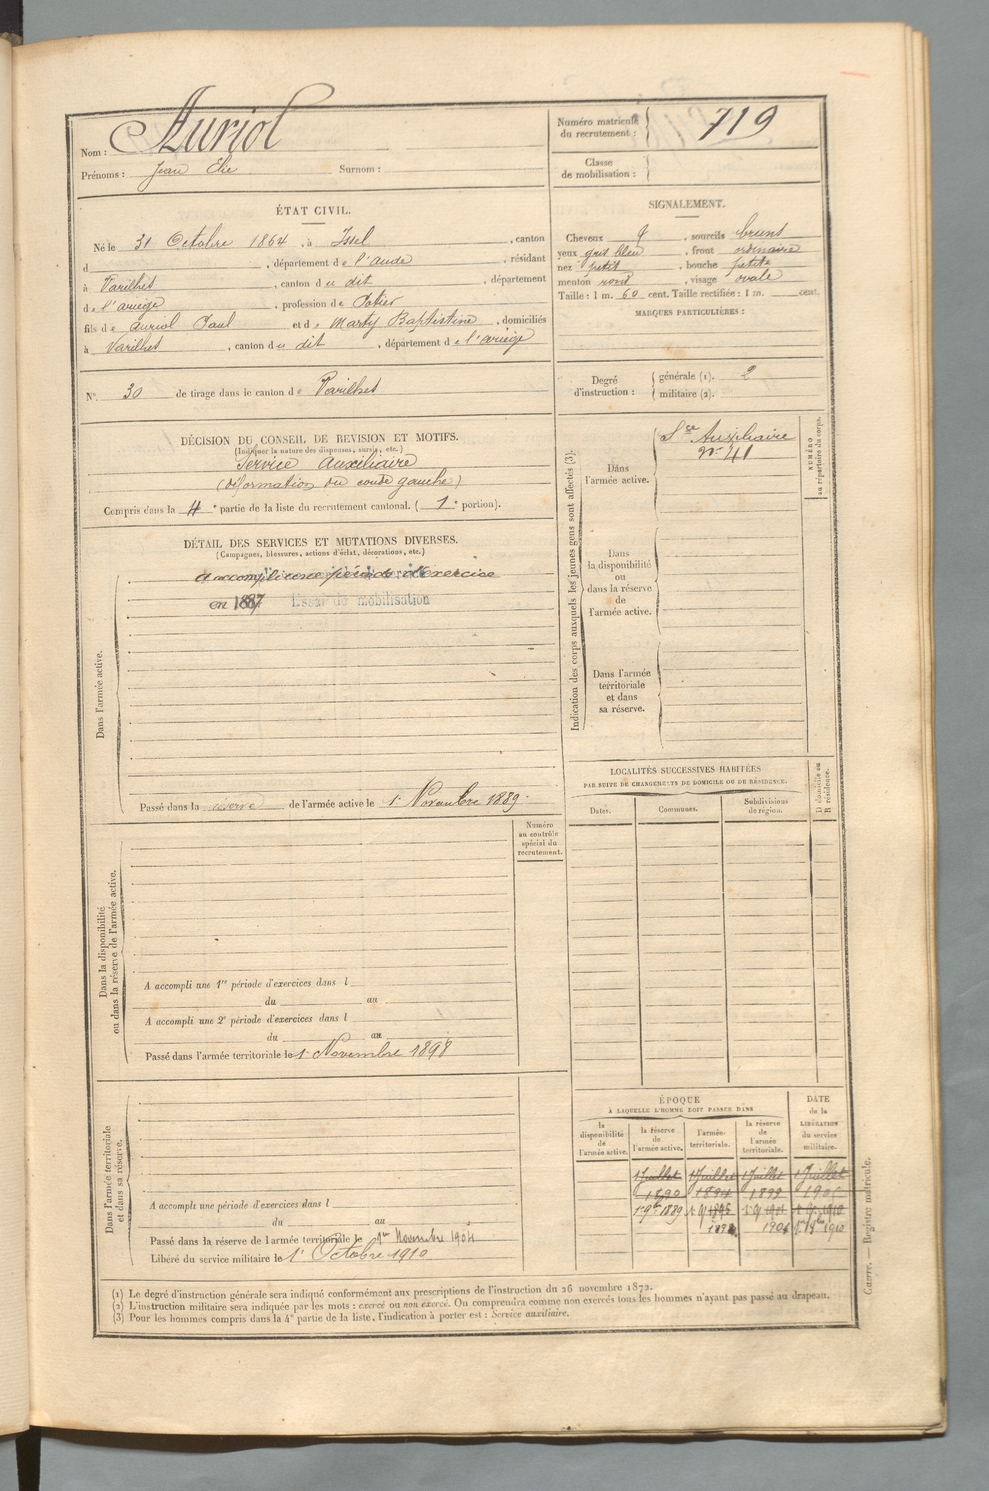 Nom : Auriol
Prénoms : Jean Elie Surnom :
Numéro matricule du recrutement : 719
Classe de mobilisation :
ÉTAT CIVIL.
Né le 31 Octobre 1864, à Issel, canton
d , département de l'aude, résidant
à Varilhes, canton du dit, département
de l'ariège, profession de Potier
fils de Auriol Paul et de Marty Baptistine, domiciliés
à Varilhes, canton du dit, département de l'ariège
N° 30 de tirage dans le canton de Varilhes
SIGNALEMENT.
Cheveux , sourcils bruns
yeux gris bleu, front ordinaire
nez petit, bouche petite
menton rond, visage ovale
Taille : 1 m. 60 cent. Taille rectifiée : 1 m. cent.
MARQUES PARTICULIÈRES :
Degré d'instruction : générale (1). 2
militaire (2).
DÉCISION DU CONSEIL DE REVISION ET MOTIFS.
(Indiquer la nature des dispenses, sursis, etc.)
Service Auxiliaire
(déformation du coude gauche)
Compris dans la 4e partie de la liste du recrutement cantonal. ( 1e portion).
DÉTAIL DES SERVICES ET MUTATIONS DIVERSES.
(Campagnes, blessures, actions d'éclat, décorations, etc.)
Dans l'armée active.
A accompli une période d'exercise
en 1887. Essai de mobilisation
Passé dans la réserve de l'armée active le 1er Novembre 1889.
Indication des corps auxquels les jeunes gens sont affectés (3).
Dans l'armée active.
Sce Auxiliaire
n° 41
NUMÉRO au répertoire du corps.
Dans la disponibilité ou dans la réserve de l'armée active.
Dans l'armée territoriale et dans sa réserve.
LOCALITÉS SUCCESSIVES HABITÉES
PAR SUITE DE CHANGEMENTS DE DOMICILE OU DE RÉSIDENCE.
Dates. Communes. Subdivisions de région.
D domicile ou R résidence.
Numéro au contrôle spécial du recrutement.
Dans la disponibilité ou dans la réserve de l'armée active.
A accompli une 1re période d'exercices dans l
du au
A accompli une 2e période d'exercices dans l
du au
Passé dans l'armée territoriale le 1er Novembre 1898
Dans l'armée territoriale et dans sa réserve.
A accompli une période d'exercices dans l
du au
Passé dans la réserve de l'armée territoriale le 1er Novembre 1904
Libéré du service militaire le 1er Octobre 1910
ÉPOQUE
À LAQUELLE L'HOMME DOIT PASSER DANS
la disponibilité de l'armée active.
la réserve de l'armée active.
l'armée territoriale.
la réserve de l'armée territoriale.
DATE de la LIBÉRATION du service militaire.
1 Juillet 1 Juillet 1 Juillet 1 Juillet
1890 1899
1er 9bre 1889
(1) Le degré d'instruction générale sera indiqué conformément aux prescriptions de l'instruction du 26 novembre 1872.
(2) L'instruction militaire sera indiquée par les mots : exercé ou non exercé. On comprendra comme non exercés tous les hommes n'ayant pas passé au drapeau.
(3) Pour les hommes compris dans la 4e partie de la liste, l'indication à porter est : Service auxiliaire.
Guerre. — Registre matricule.